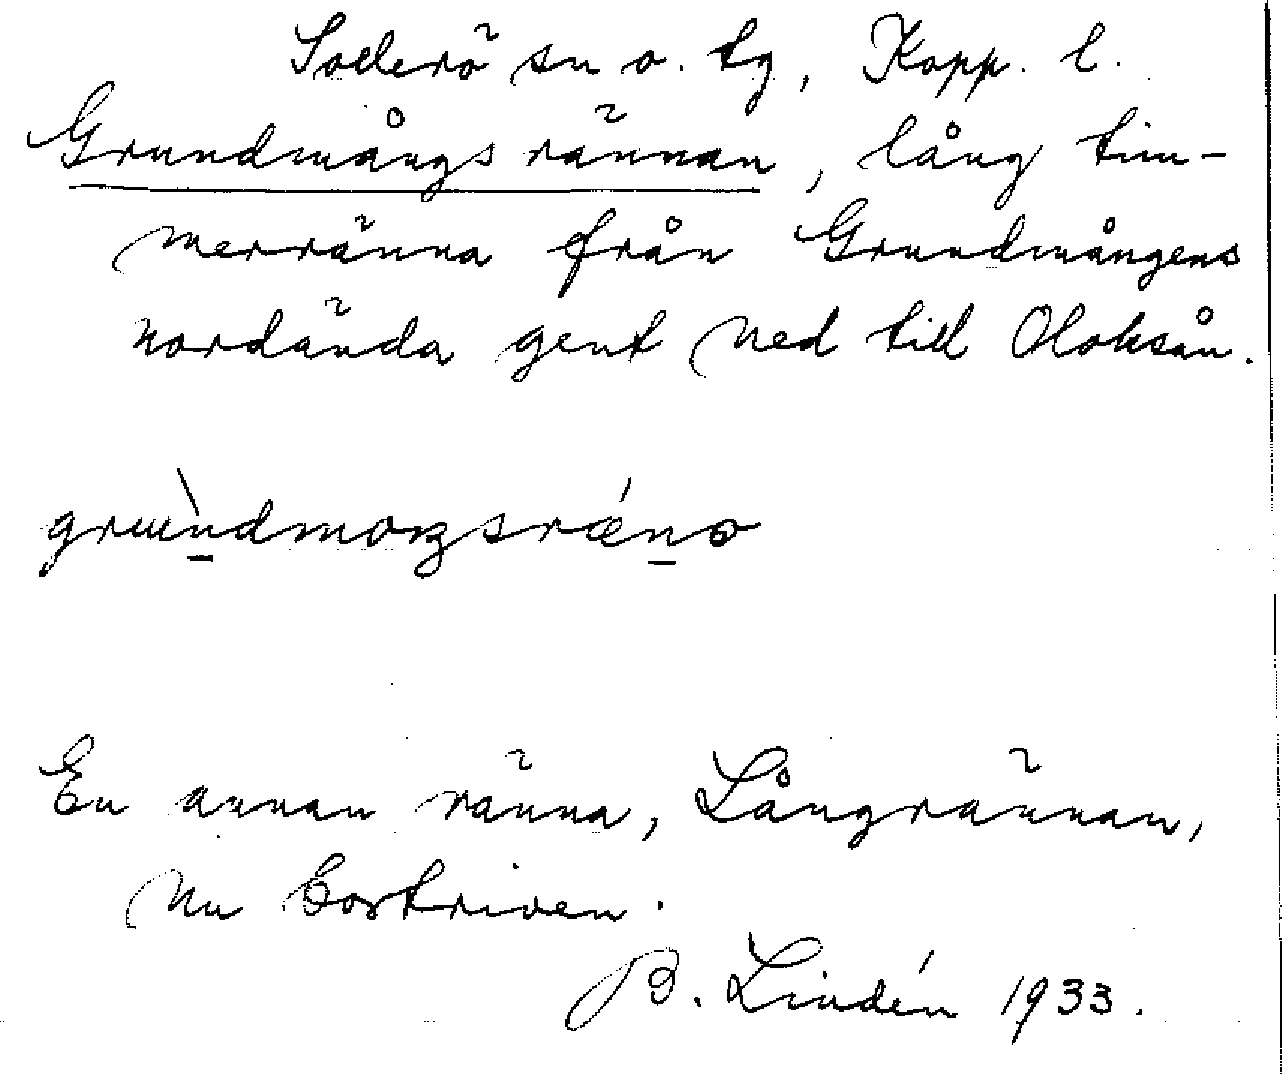 Sollerö sn o. tg, Kopp. l.
Grundmångsrännan, lång tim-
merränna från Grundmångens
nordända gent ned till Oloksån.
grùndmoŋsrǽno
En annan ränna, Långrännan,
nu bortriven.
B. Lindén 1933.